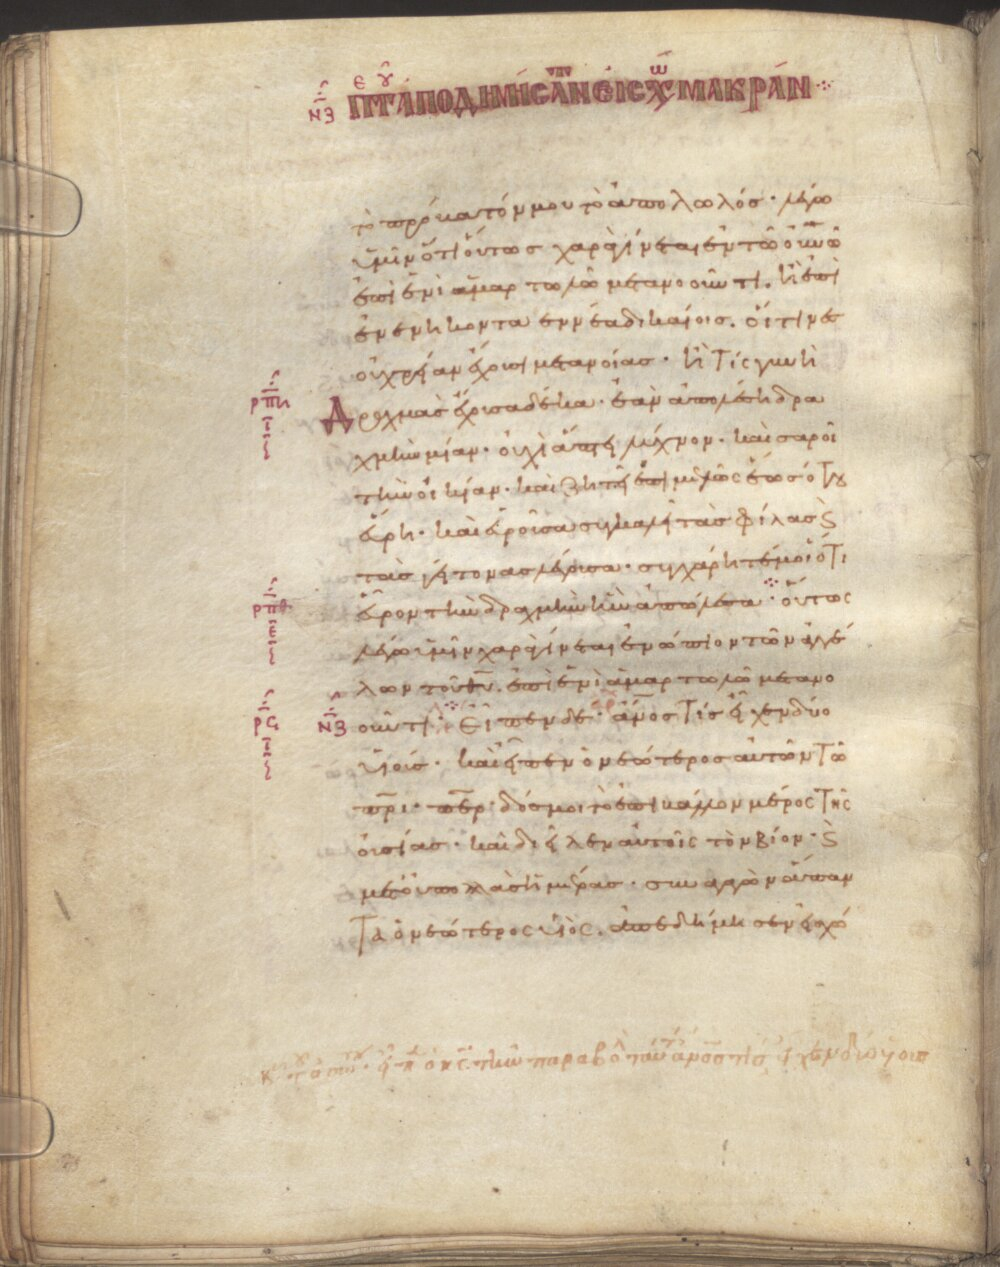 ΝΖ ΠΕΤΟΥ ΑΠΟΔΗΜΗΣΑΝΤ ΕΙΣ ΧΩ ΜΑΚΡΑΝ
τὸ πρόβατόν μου τὸ ἀπολωλός · λέγω
ὑμῖν ὅτι οὕτως χαρὰ γίνεται ἐν τῶ οὐνῶ
ἐπὶ ἑνὶ ἁμαρτωλῶ μετανοοῦντι. ἢ ἐπὶ
ἐνενήκοντα εννέα δικαίοις. οἵτινες
οὐ χρείαν ἔχουσι μετανοίας · ἢ τίς γυνὴ
ρπη
Δραχμὰς ἔχουσα δέκα · ἐὰν ἀπολέση δρα
χμὴν μίαν · οὐχὶ ἅπτει λύχνον · καὶ σαροῖ
τὴν οἰκίαν · καὶ ζητεῖ ἐπιμελῶς ἕως ὅτου
εὕρη · καὶ εὑροῦσα συγκαλεῖ τὰς φίλας ϗ
τὰς γείτονας λέγουσα · συγχάρητέ μοι ὅτι
ρπθ
εὗρον τὴν δραχμὴν ἣν ἀπώλεσα · οὕτως
λέγω ὑμῖν χαρὰ γίνεται ἐνώπιον τῶν ἀγγέ
λων τοῦ θυ. ἐπὶ ἑνὶ ἁμαρτωλῶ μετανο
ρϟ ΝΖ
οῦντι · Εἶπεν δὲ · ἄνος τίς εἶχεν δύο
υἱούς · καὶ εἶπεν ὁ νεώτερος αὐτῶν τῶ
πρι · περ · δός μοι τὸ ἐπιβάλλον μέρος τῆς
οὐσίας · καὶ διεῖλεν αὐτοῖς τὸν βίον · ϗ
μετ' οὐ πολλὰς ἡμέρας · συναγαγὼν ἅπαν
τα ὁ νεώτερος υἱὸς. ἀπεδήμησεν εἰς χώ
τὴν παραβολ ταύτ ἄνος τίς εἶχεν δύο υἱους